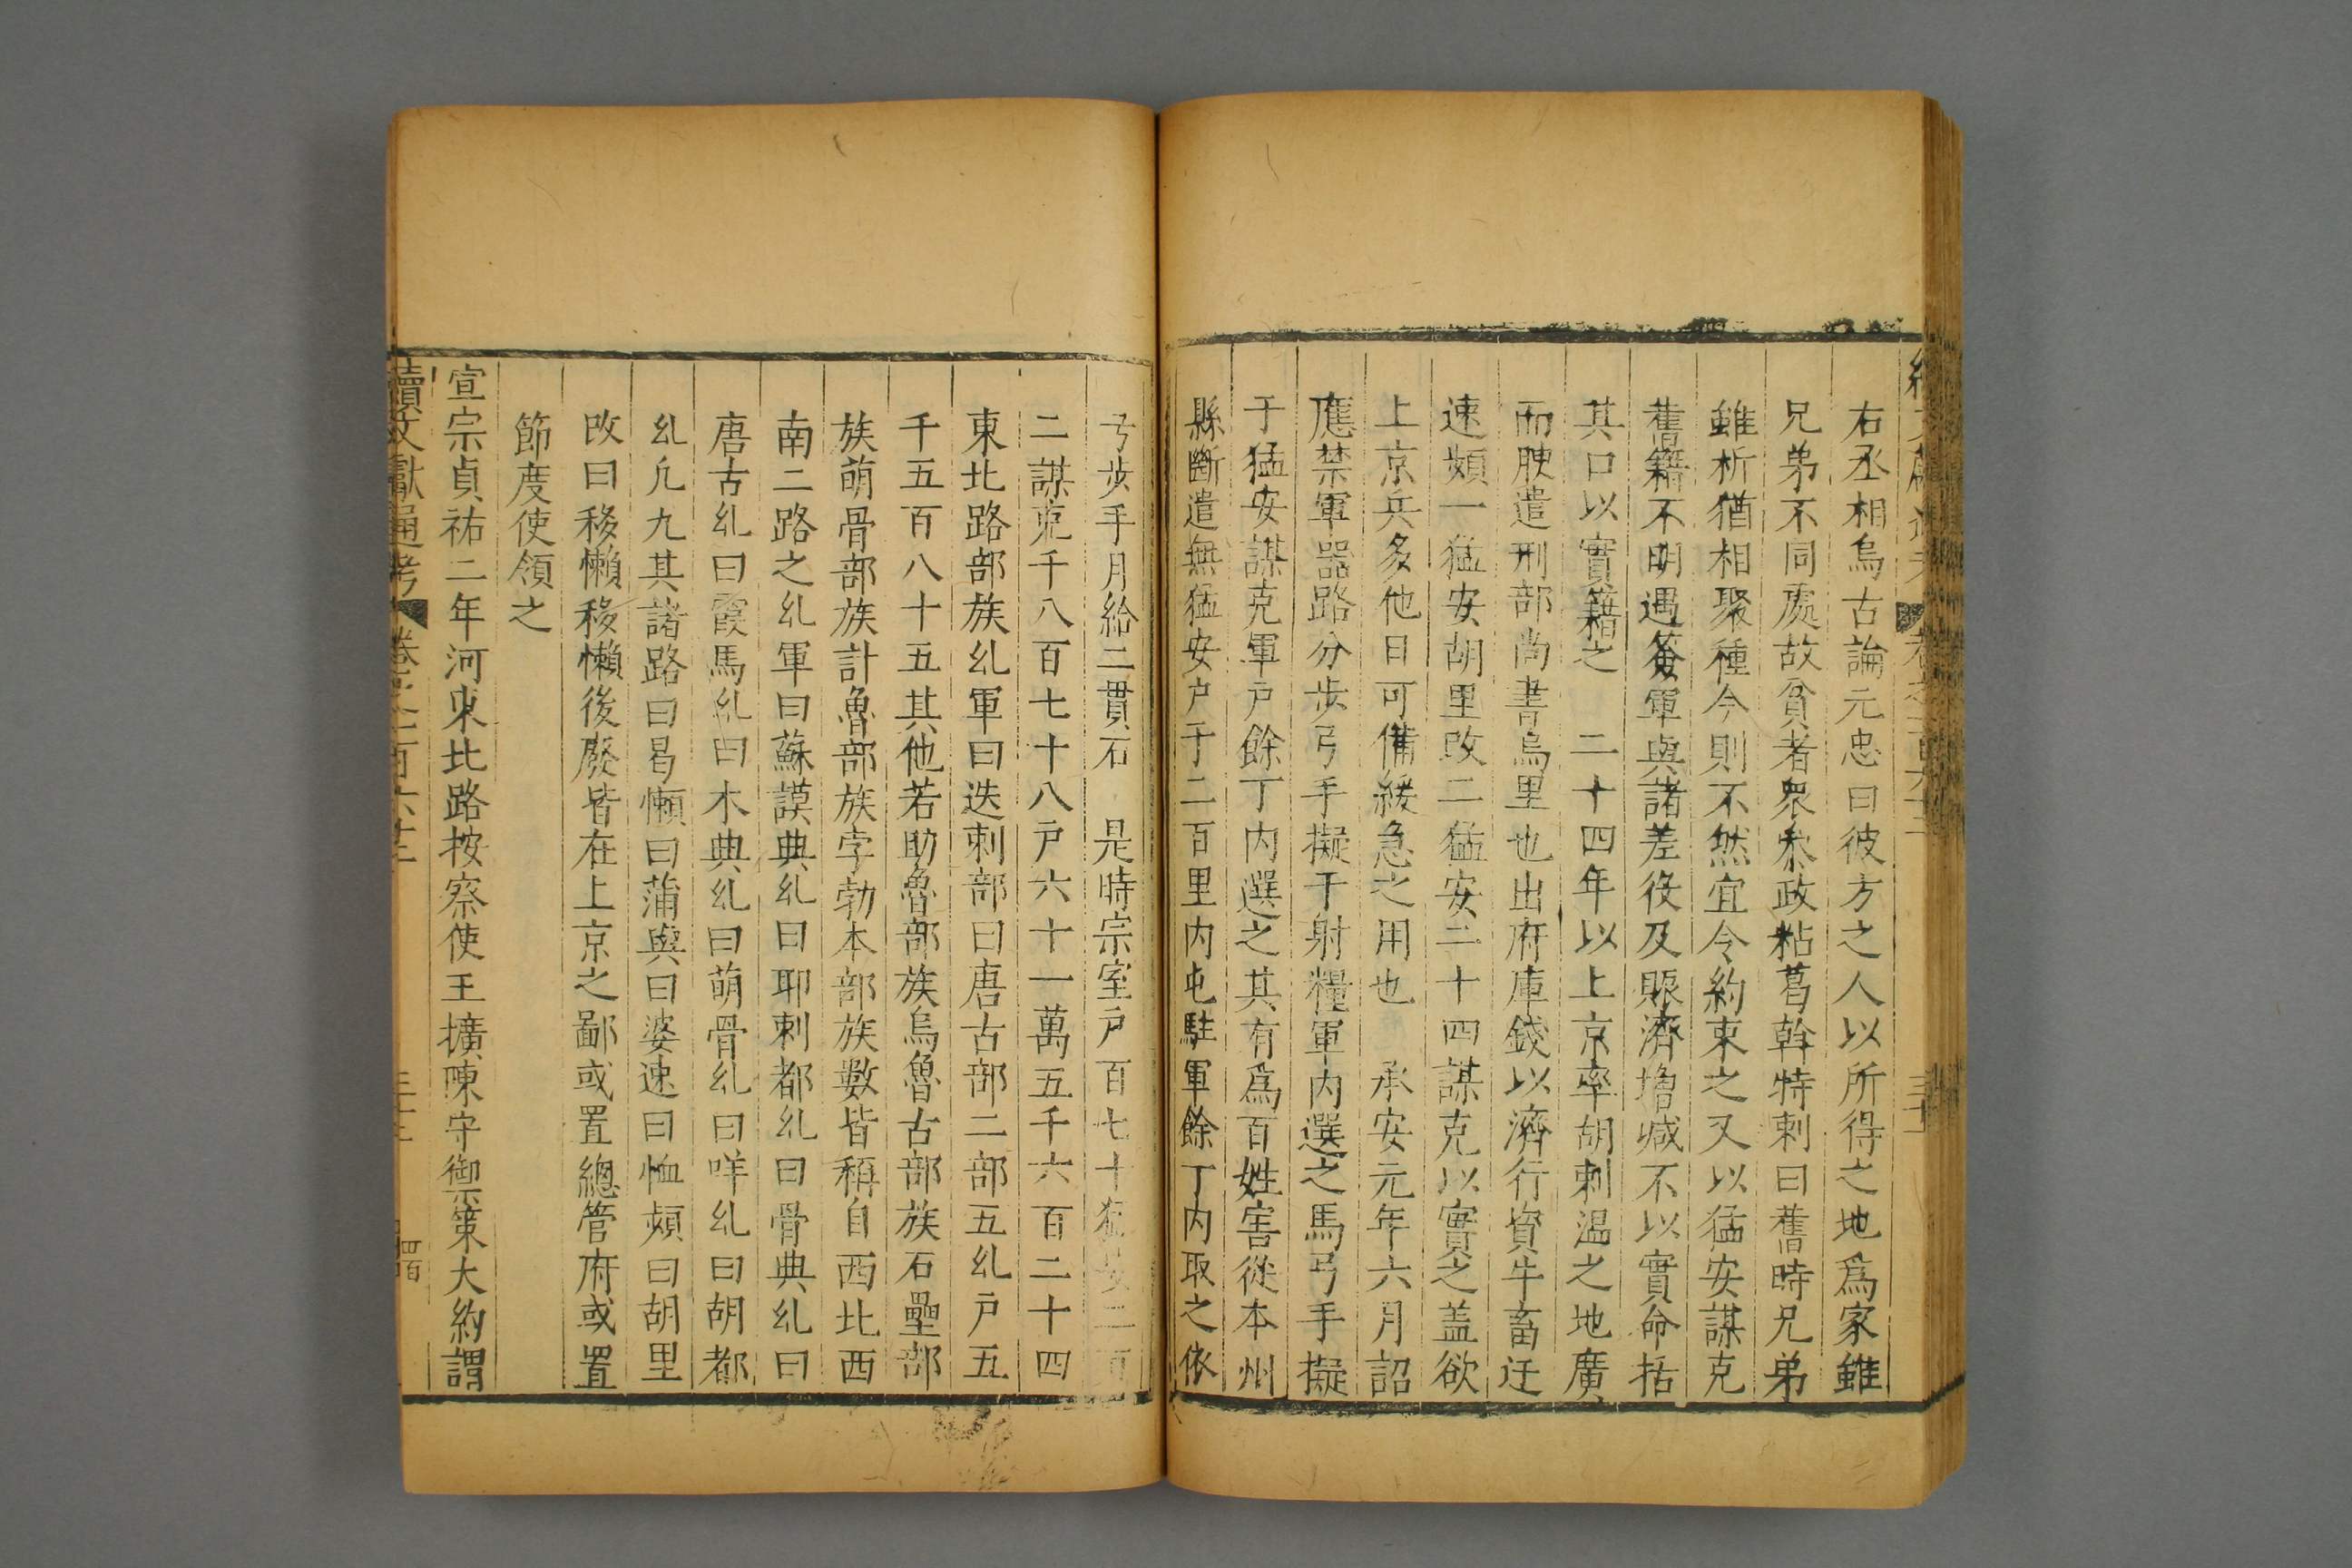 右丞相烏古論元忠曰彼方之人以所得之地爲家雖
兄弟不同處故貧者衆叅政粘葛斡特剌曰舊時兄弟
雖析猶相聚種今則不然宜令約束之又以猛安謀克
舊籍不明遇簽軍與諸差役及賑濟增减不以實命括
其口以實籍之 二十四年以上京率胡剌溫之地廣
而腴遣刑部尚書烏里也出府庫錢以濟行資牛畜迁
速頻一猛安胡里改二猛安二十四謀克以實之盖欲
上京兵多他日可備緩急之用也 承安元年六月詔
應禁軍器路分步弓手擬于射糧軍内選之馬弓手擬
于猛安謀克軍戶餘丁内選之其有爲百姓害從本州
縣斷遣無猛安户于二百里内屯駐軍餘丁内取之依
弓步手月給二貫石 是時宗室戸百七十猛安二百
二謀克千八百七十八戸六十一萬五千六百二十四
東北路部族乣軍曰迭剌部曰唐古部二部五乣戸五
千五百八十五其他若助魯部族烏魯古部族石壘部
族萌骨部族計魯部族孛勃本部族數皆稱自西北西
南二路之乣軍曰蘇謨典乣曰耶剌都乣曰骨典乣曰
唐古乣曰霞馬乣曰木典乣曰萌骨乣曰咩乣曰胡都
乣凢九其諸路曰曷懶曰蒲與曰婆速曰恤頻曰胡里
改曰移懶移懶後廢皆在上京之鄙或置總管府或置
節度使領之
宣宗貞祐二年河東北路按察使王擴陳守禦策大約謂
續文獻通考 卷之一百六十二